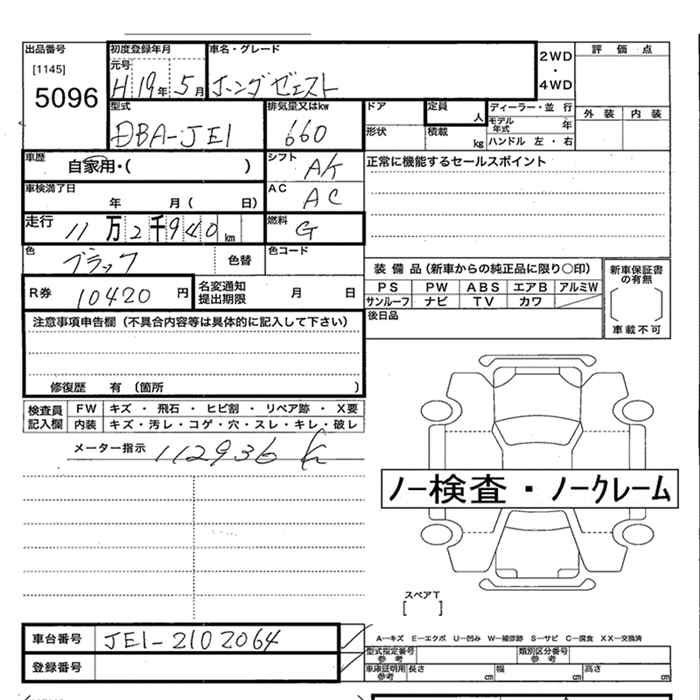 出品番号 初度登録年月 車名・グレード 2WD・4WD 評価点
[1145] 元号
5096 H 19年 5月 ホンダ ゼスト
型式 排気量又はkw ドア 定員 人 ディーラー・並行 外装 内装
DBA-JE1 660 形状 積載 kg モデル年式 年
ハンドル 左・右
車歴 自家用・( ) シフト A/t 正常に機能するセールスポイント
車検満了日 年 月( 日) AC AC
走行 11万2千940km 燃料 G
色 ブラック 色替 色コード
装備品(新車からの純正品に限り○印) 新車保証書の有無
R券 10420円 名変通知提出期限 月 日 PS PW ABS エアB アルミW
サンルーフ ナビ TV カワ
注意事項申告欄(不具合内容等は具体的に記入して下さい) 後日品 車載不可
修復歴 有(箇所 )
検査員記入欄 FW キズ・飛石・ヒビ割・リペア跡・X要
内装 キズ・汚レ・コゲ・穴・スレ・キレ・破レ
メーター指示 112936 K
ノー検査・ノークレーム
スペアT
[ ]
車台番号 JE1-2102064 A-キズ E-エクボ U-凹み W-補修跡 S-サビ C-腐食 XX-交換済
型式指定番号 参考 類別区分番号 参考
登録番号 車庫証明用 参考 長さ cm 幅 cm 高さ cm